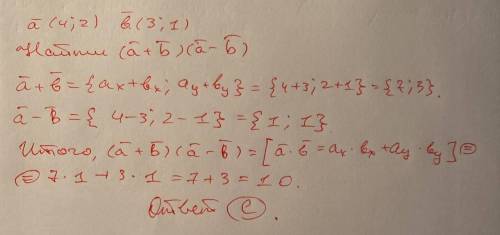 ā(4;2) b̄(3;1)
Найти (ā+b̄)(ā-b̄)
ā+b̄={aₓ+bₓ; a_y+b_y}={4+3;2+1}={7;3}.
ā-b̄={4-3;2-1}={1;1}
Итого, (ā+b̄)(ā-b̄)=[ā·b̄=aₓ·bₓ+a_y·b_y]=
= 7·1+3·1=7+3=10.
Ответ C.